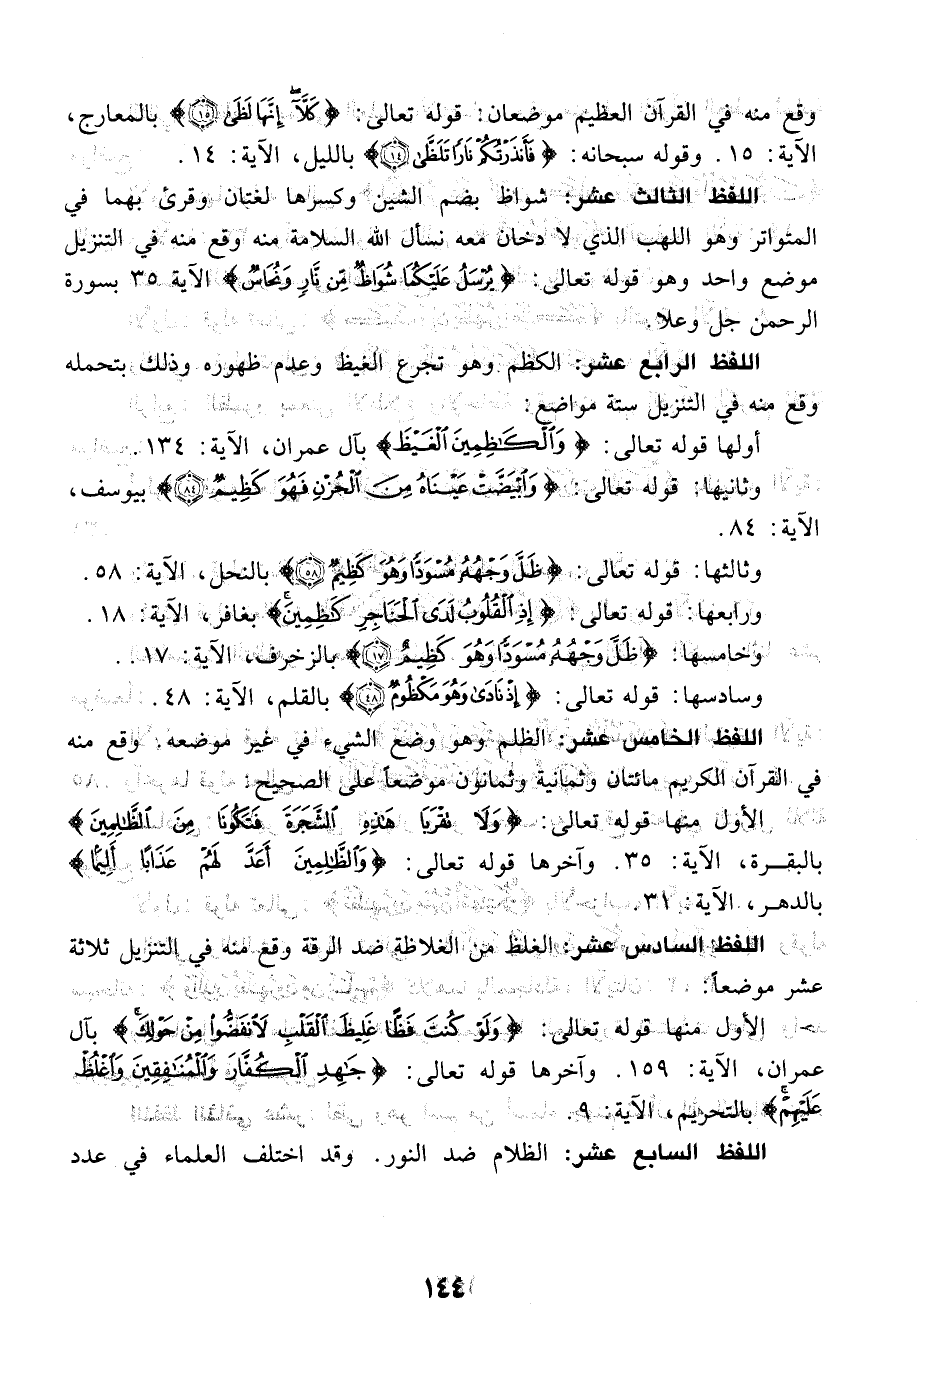 وقع منه في القرآن العظيم موضعان: قوله تعالى: ﴿ كَلَّآ إِنَّهَا لَظَىٰ ۝١٥ ﴾ بالمعارج،
الآية: ١٥. وقوله سبحانه: ﴿ فَأَنذَرْتُكُمْ نَارًا تَلَظَّىٰ ۝١٤ ﴾ بالليل، الآية: ١٤.
اللفظ الثالث عشر: شواظ بضم الشين وكسرها لغتان وقرئ بهما في
المتواتر وهو اللهب الذي لا دخان معه نسأل الله السلامة منه وقع منه في التنزيل
موضع واحد وهو قوله تعالى: ﴿ يُرْسَلُ عَلَيْكُمَا شُوَاظٌ مِّن نَّارٍ وَنُحَاسٌ ﴾ الآية ٣٥ بسورة
الرحمن جل وعلا.
اللفظ الرابع عشر: الكظم وهو تجرع الغيظ وعدم ظهوره وذلك بتحمله
وقع منه في التنزيل ستة مواضع:
أولها قوله تعالى: ﴿ وَٱلْكَٰظِمِينَ ٱلْغَيْظَ ﴾ بآل عمران، الآية: ١٣٤.
وثانيها: قوله تعالى: ﴿ وَٱبْيَضَّتْ عَيْنَاهُ مِنَ ٱلْحُزْنِ فَهُوَ كَظِيمٌ ۝٨٤ ﴾ بيوسف،
الآية: ٨٤.
وثالثها: قوله تعالى: ﴿ ظَلَّ وَجْهُهُ مُسْوَدًّا وَهُوَ كَظِيمٌ ۝٥٨ ﴾ بالنحل، الآية: ٥٨.
ورابعها: قوله تعالى: ﴿ إِذِ ٱلْقُلُوبُ لَدَى ٱلْحَنَاجِرِ كَٰظِمِينَ ۚ ﴾ بغافر، الآية: ١٨.
وخامسها: ﴿ ظَلَّ وَجْهُهُ مُسْوَدًّا وَهُوَ كَظِيمٌ ۝١٧ ﴾ بالزخرف، الآية: ١٧.
وسادسها: قوله تعالى: ﴿ إِذْ نَادَىٰ وَهُوَ مَكْظُومٌ ۝٤٨ ﴾ بالقلم، الآية: ٤٨.
اللفظ الخامس عشر: الظلم وهو وضع الشيء في غير موضعه. وقع منه
في القرآن الكريم مائتان وثمانية وثمانون موضعاً على الصحيح:
الأول منها قوله تعالى: ﴿ وَلَا نَقْرَبَا هَٰذِهِ ٱلشَّجَرَةَ فَتَكُونَا مِنَ ٱلظَّٰلِمِينَ ﴾
بالبقرة، الآية: ٣٥. وآخرها قوله تعالى: ﴿ وَٱلظَّٰلِمِينَ أَعَدَّ لَهُمْ عَذَابًا أَلِيمًا ﴾
بالدهر، الآية: ٣١.
اللفظ السادس عشر: الغلظ من الغلاظة ضد الرقة وقع منه في التنزيل ثلاثة
عشر موضعاً:
الأول منها قوله تعالى: ﴿ وَلَوْ كُنتَ فَظًّا غَلِيظَ ٱلْقَلْبِ لَٱنفَضُّوا۟ مِنْ حَوْلِكَ ۚ ﴾ بآل
عمران، الآية: ١٥٩. وآخرها قوله تعالى: ﴿ جَٰهِدِ ٱلْكُفَّارَ وَٱلْمُنَٰفِقِينَ وَٱغْلُظْ
عَلَيْهِمْ ۚ ﴾ بالتحريم، الآية: ٩.
اللفظ السابع عشر: الظلام ضد النور. وقد اختلف العلماء في عدد
١٤٤